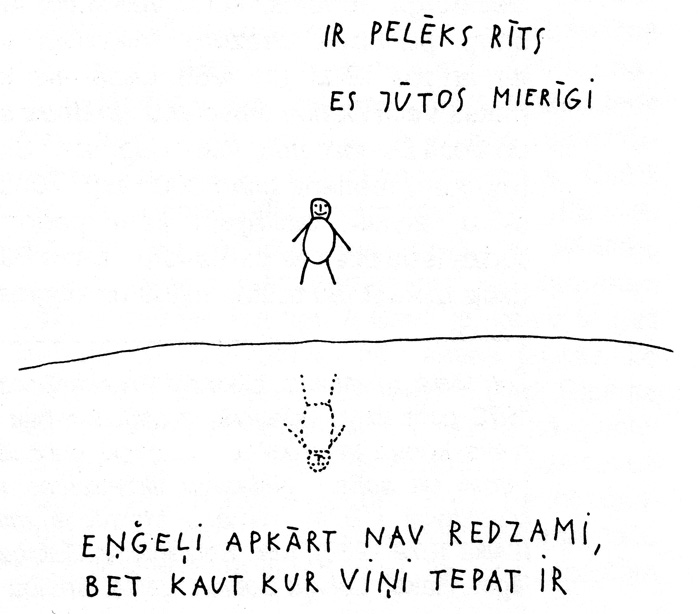 IR PELĒKS RĪTS
ES JŪTOS MIERĪGI
EŅĢEĻI APKĀRT NAV REDZAMI,
BET KAUT KUR VIŅI TEPAT IR